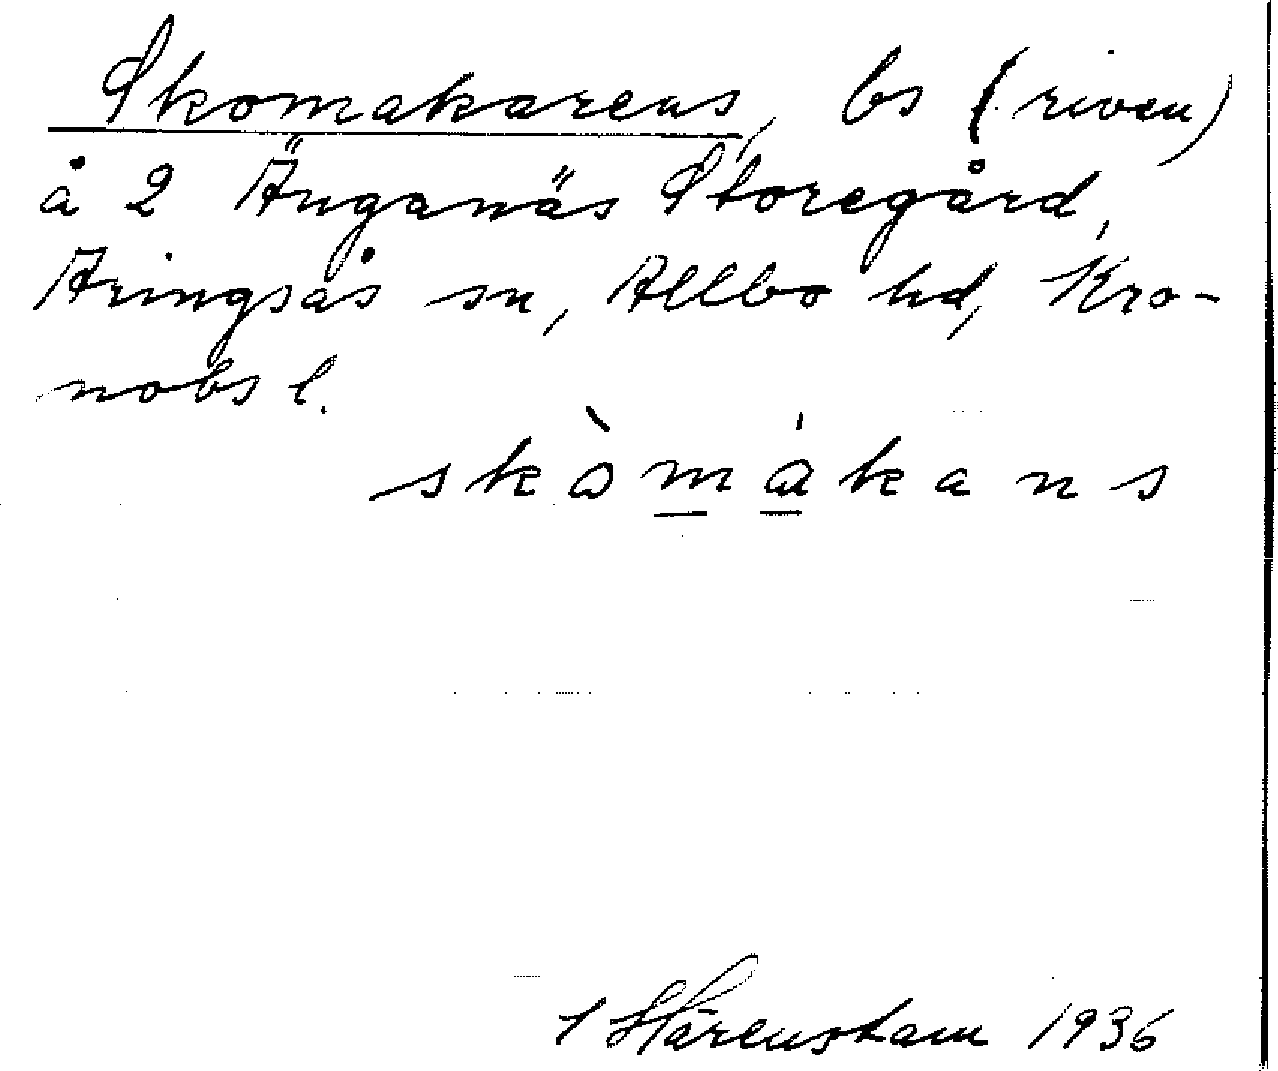 Skomakarens, bs (riven)
å 2 Änganäs Storegård,
Aringsås sn, Allbo hd, Kro-
nobs l.
skòmákans
1936